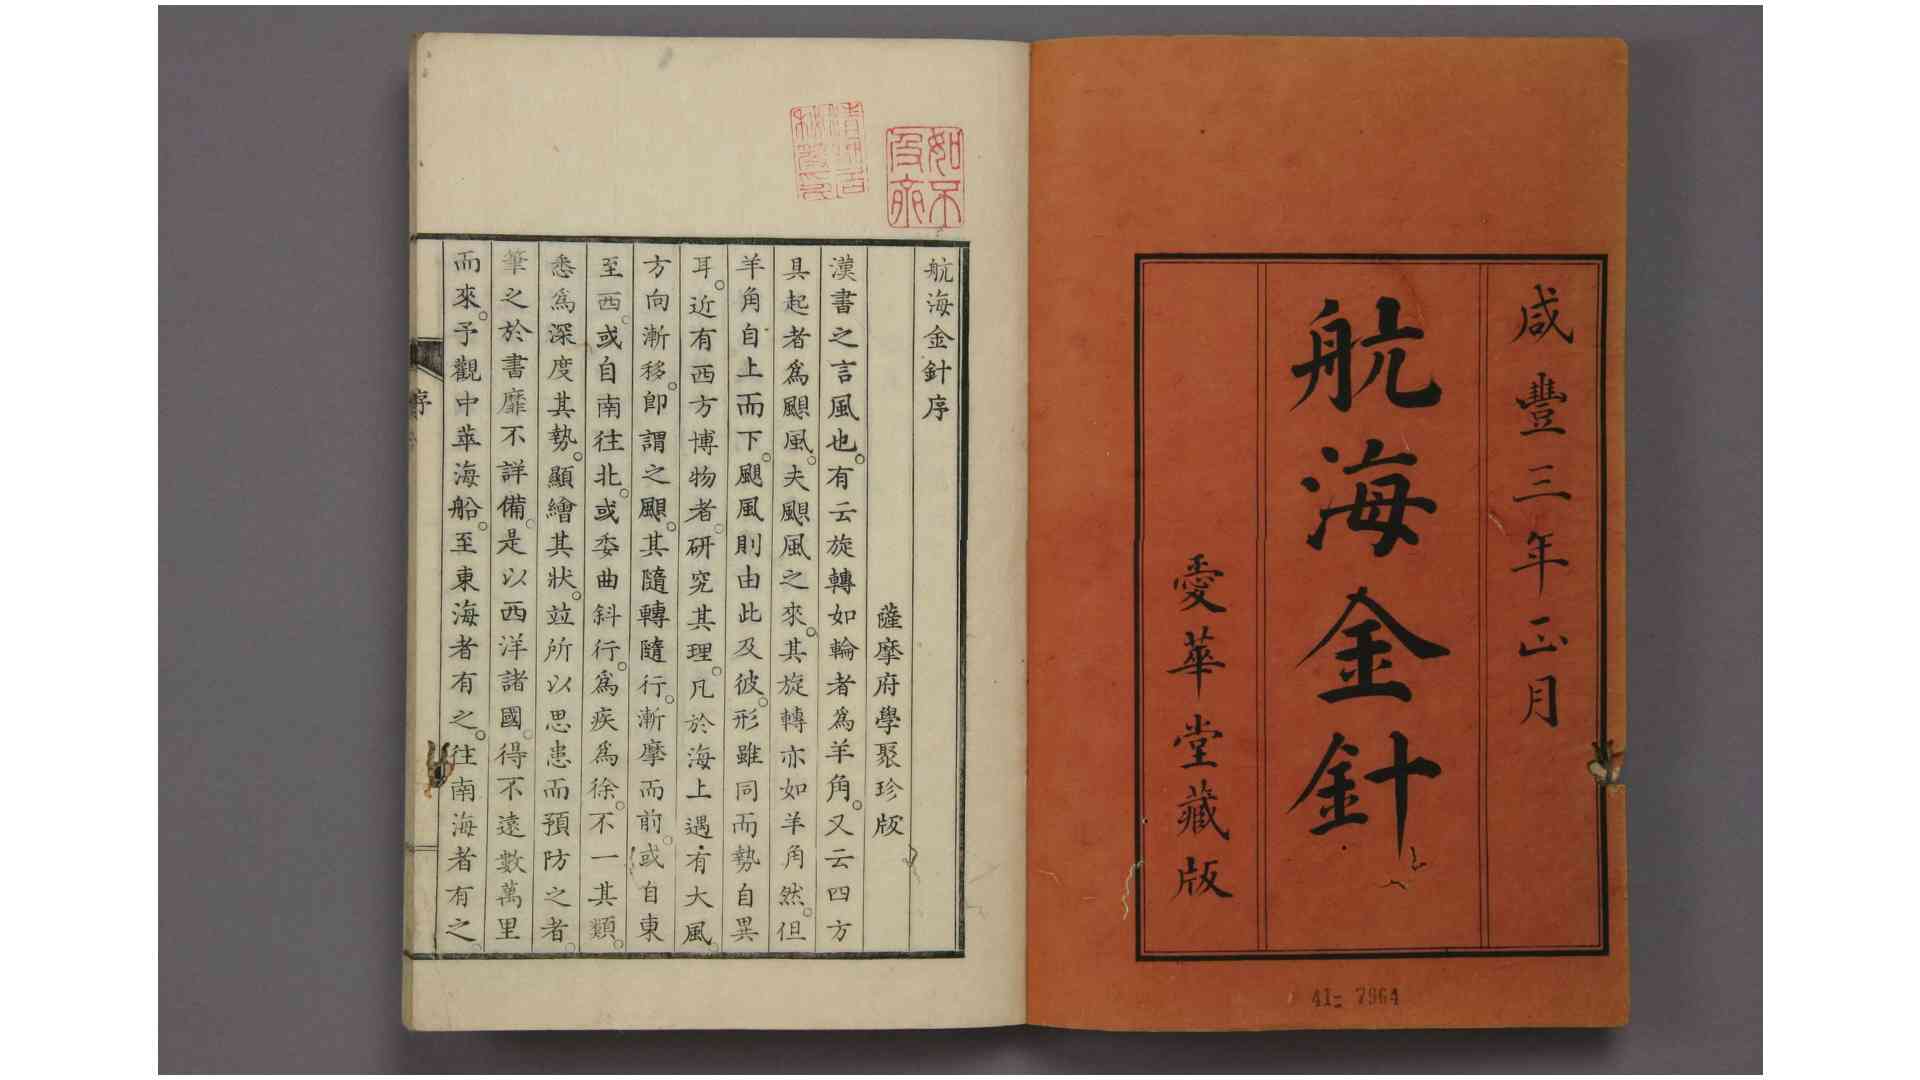 咸豐三年正月
航海金針
愛華堂藏版
41- 7964
如不及齋
航海金針序
薩摩府學聚珍版
漢書之言風也。有云旋轉如輪者爲羊角。又云四方
具起者爲颶風。夫颶風之來。其旋轉亦如羊角然。但
羊角自上而下。颶風則由此及彼。形雖同而勢自異
耳。近有西方博物者。研究其理。凡於海上遇有大風。
方向漸移。卽謂之颶。其隨轉隨行。漸摩而前。或自東
至西。或自南往北。或委曲斜行。爲疾爲徐。不一其類。
悉爲深度其勢。顯繪其狀。竝所以思患而預防之者。
筆之於書靡不詳備。是以西洋諸國。得不遠數萬里
而來。予觀中華海船。至東海者有之。往南海者有之。
序